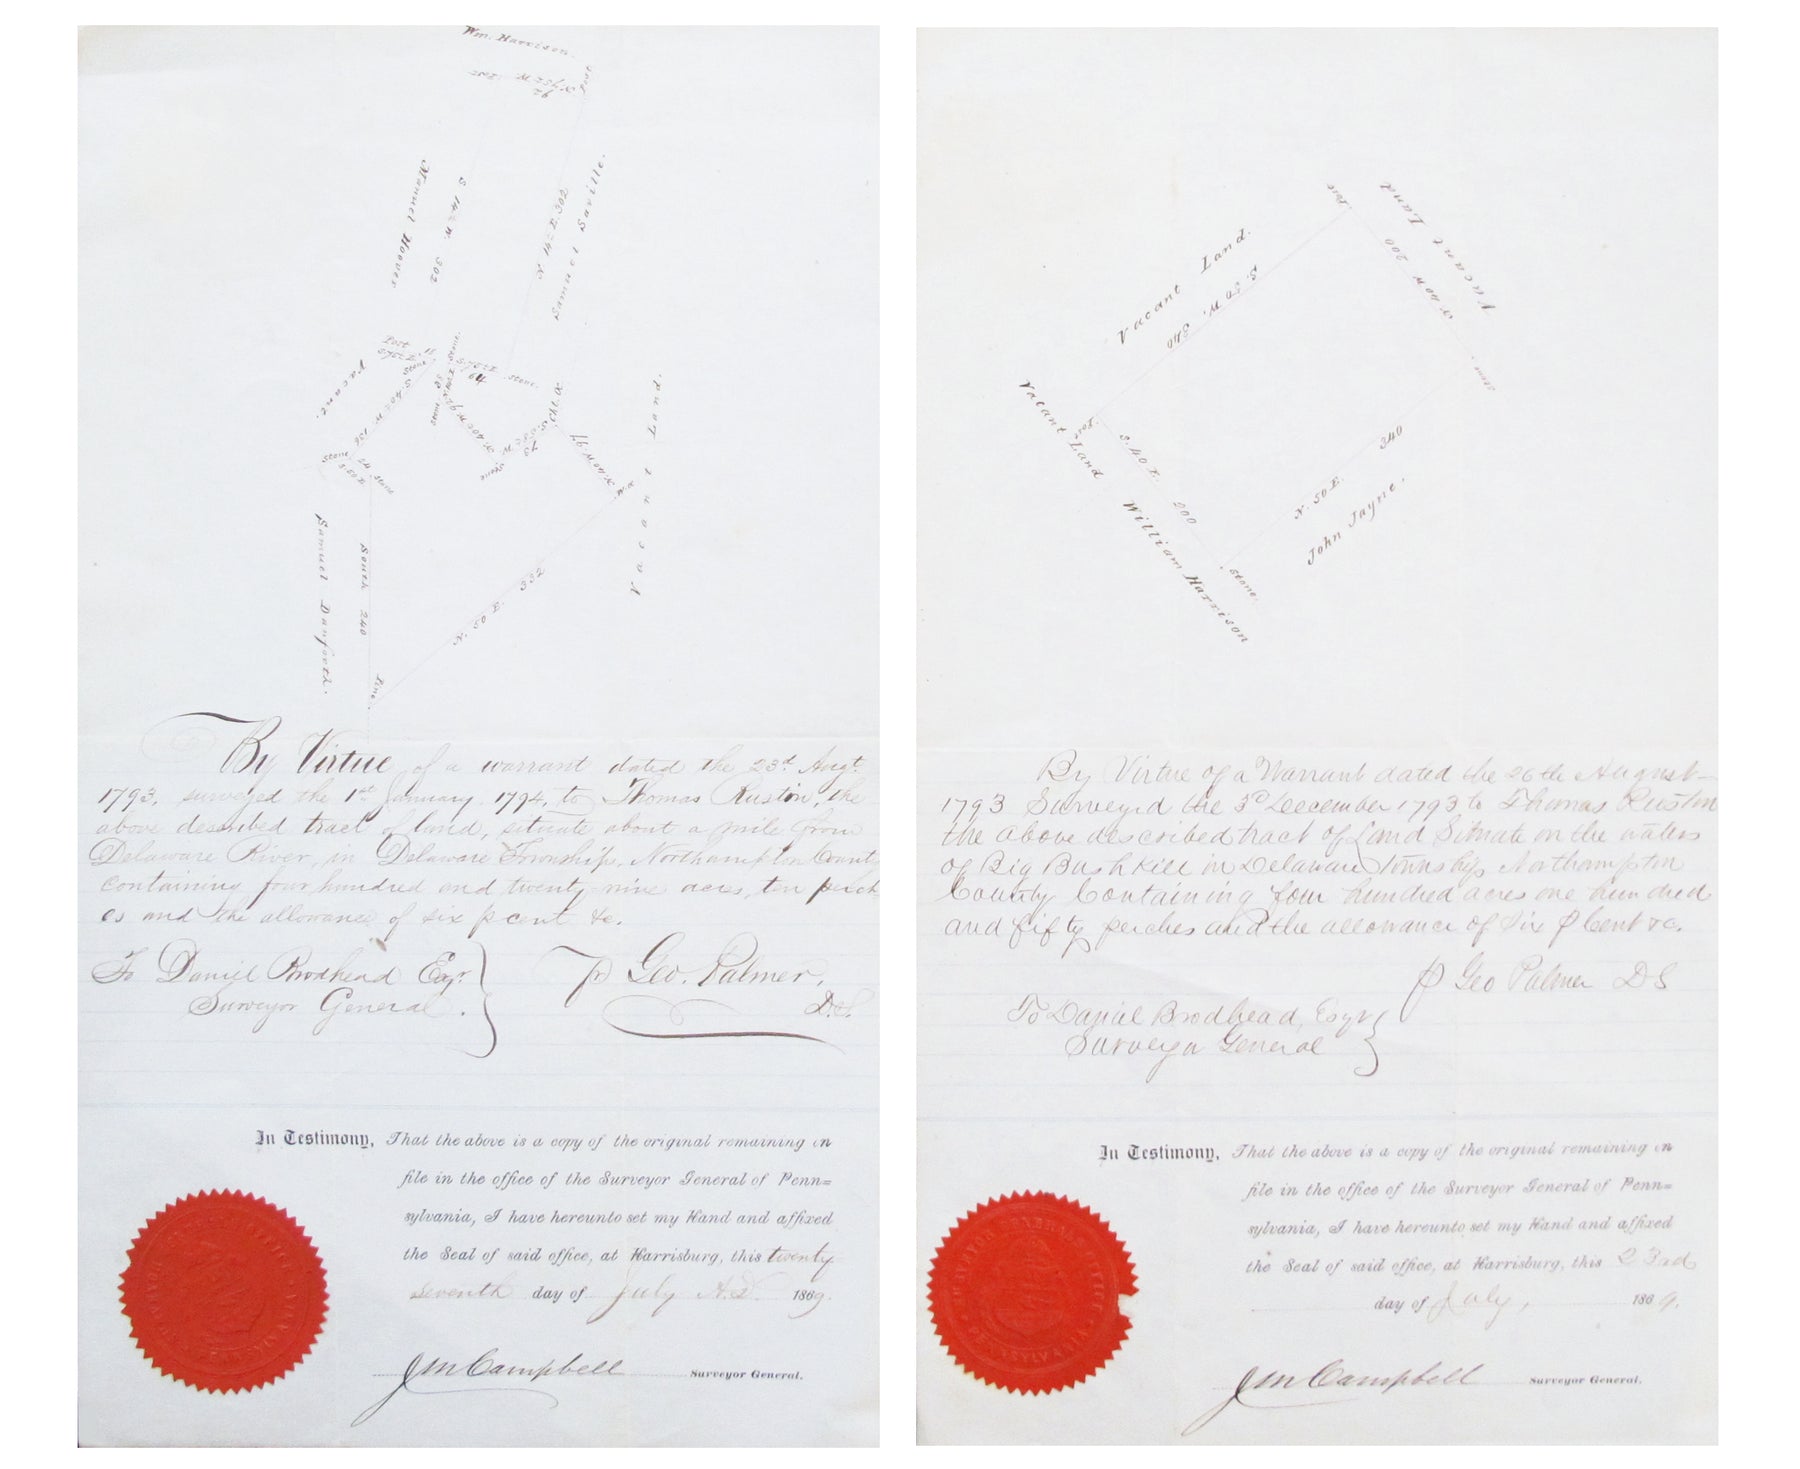 Wm. Harrison.
Post
N 75½ W. 202
92
Manuel Hoover
S 14½ W. 302
N 14½ E. 302
Samuel Saville.
Post
S 75½ E.
11
Stone
Stone.
S 75½ E
64
Stone.
Vacant.
S. 40½ W. 136
N 40½ W 92
Stone
S. 53½ W.
73
Cht. O.
N 40 W. 97
W.O.
Vacant Land.
Stone
S. 50 E
42
Stone
Samuel Danforth.
South 240
N. 50 E. 332
Pine
By Virtue of a warrant dated the 23d. Augt.
1793, surveyed the 1st January 1794, to Thomas Ruston, the
above described tract of land, situate about a mile from
Delaware River, in Delaware Township, Northampton County
containing four hundred and twenty-nine acres, ten perch-
es and the allowance of six p cent &c.
To Daniel Brodhead Esqr.
Surveyor General.
pr Geo. Palmer,
D.S.
In Testimony, That the above is a copy of the original remaining on
file in the office of the Surveyor General of Penn=
sylvania, I have hereunto set my Hand and affixed
the Seal of said office, at Harrisburg, this twenty
seventh day of July A.D. 1869.
JM Campbell Surveyor General.
Post
Vacant Land
N 40 W 200
Vacant Land.
S. 50 W. 340
Stone
Post
Vacant Land
S. 40 E. 200
William Harrison
Stone.
N. 50 E. 340
John Jayne.
By Virtue of a Warrant dated the 26th August
1793 Surveyed the 3d December 1793 to Thomas Ruston
the above described tract of Land Situate on the waters
of Big Bushkill in Delaware Township Northampton
County Containing four hundred acres one hundred
and fifty perches and the allowance of Six p Cent &c.
p Geo Palmer DS
To Daniel Brodhead, Esqr
Surveyor General
In Testimony, That the above is a copy of the original remaining on
file in the office of the Surveyor General of Penn=
sylvania, I have hereunto set my Hand and affixed
the Seal of said office, at Harrisburg, this 23rd
day of July, 1869.
JM Campbell Surveyor General.